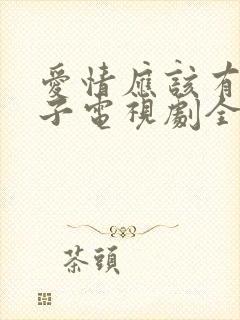 愛情應該有
子電視劇全
茶頭